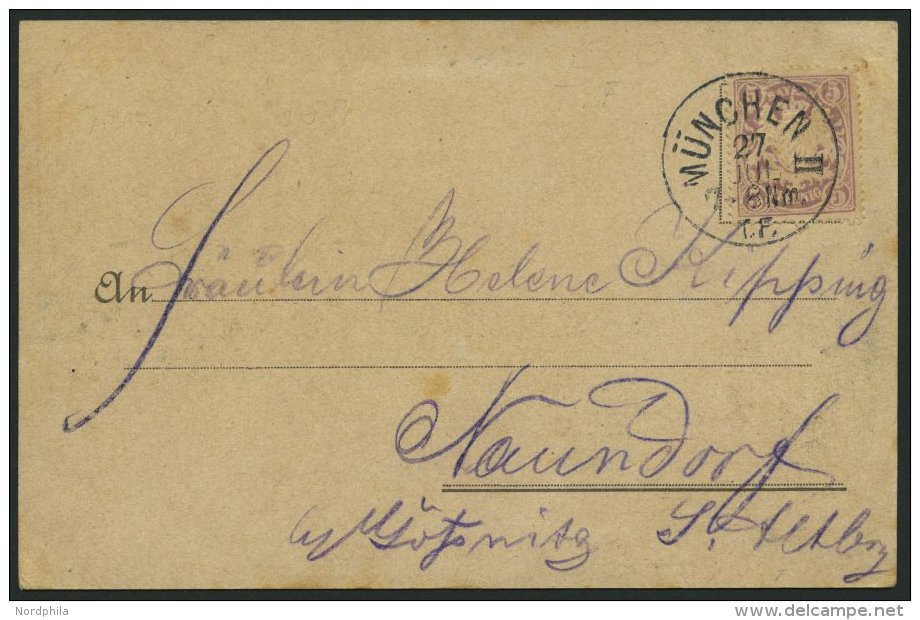 MÜNCHEN II
27
JUL
7-8 Nm.
5
5
An Fräulein Helene Kipping
Naundorf
b/ Gößnitz S. Altbg
Nordphila
delcampe.net